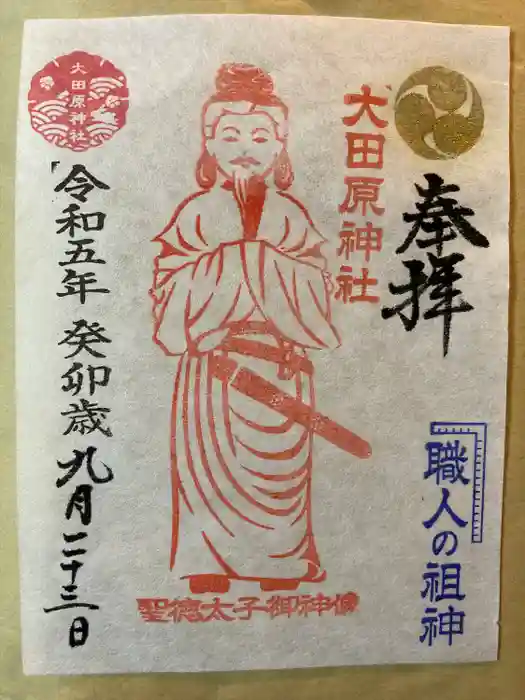 奉拝
職人の祖神
大田原神社
聖徳太子御神像
大田原神社
令和五年 癸卯歳 九月二十三日